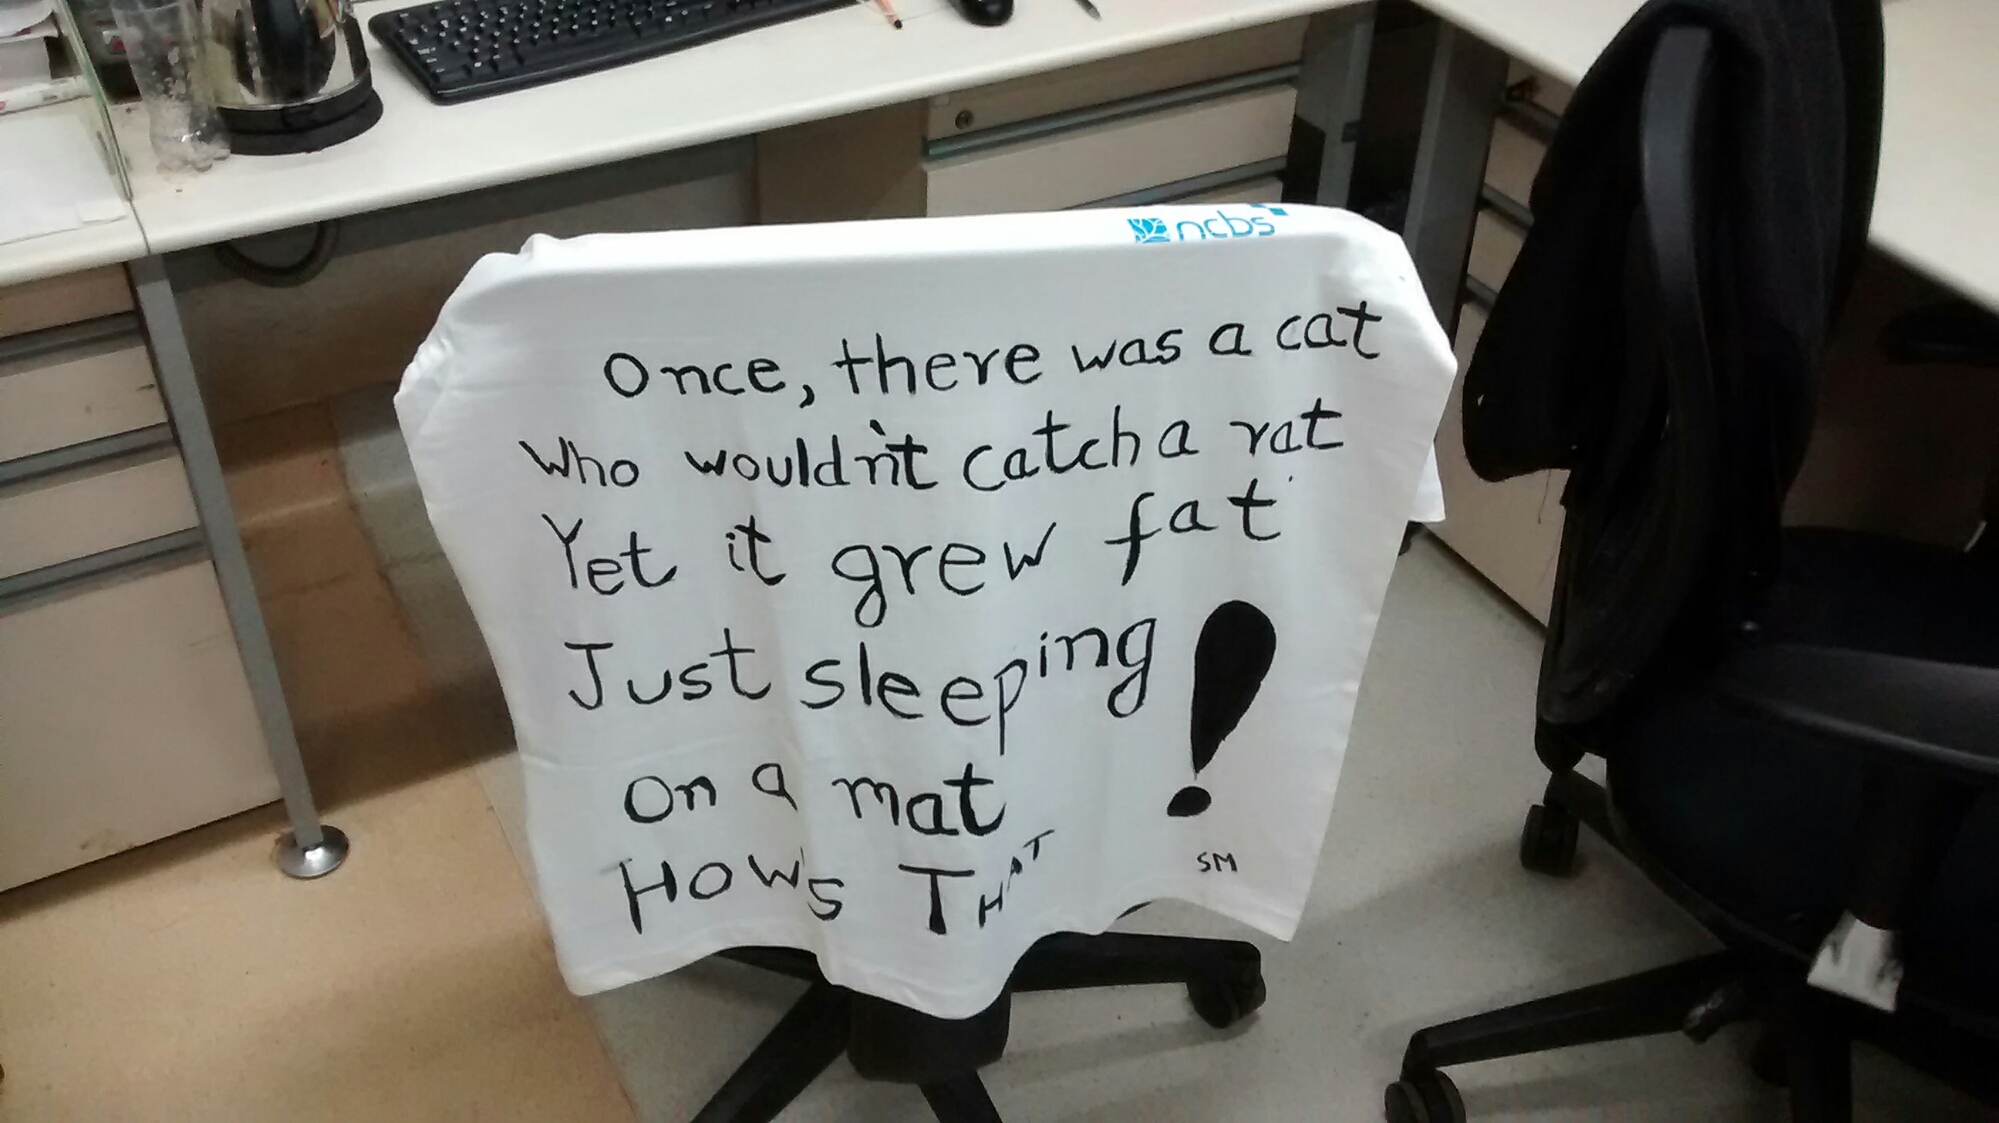 ncbs
Once, there was a cat
Who wouldn't catch a rat
Yet it grew fat
Just sleeping
on a mat
HOW'S THAT !
SM